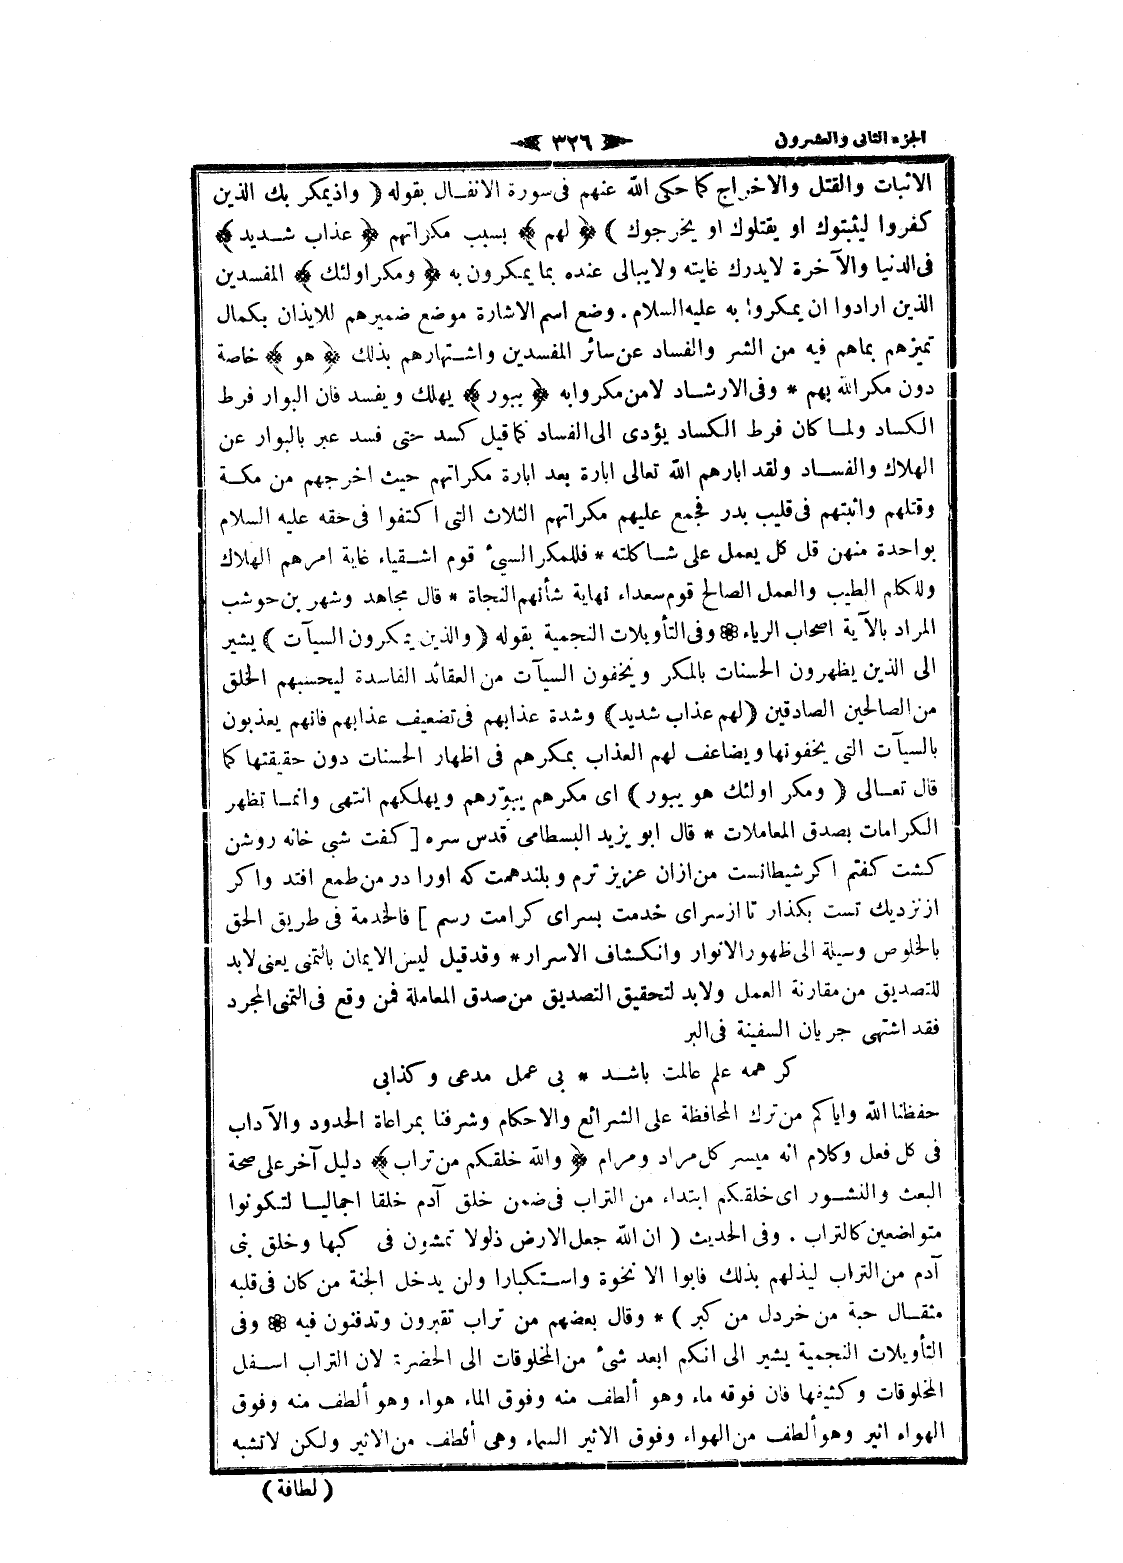 الجزء الثانى والعشرون
٣٢٦
الاثبات والقتل والاخراج كما حكى الله عنهم فى سورة الانفال بقوله ( واذ يمكر بك الذين
كفروا ليثبتوك او يقتلوك او يخرجوك ) ﴿ لهم ﴾ بسبب مكراتهم ﴿ عذاب شديد ﴾
فى الدنيا والآخرة لا يدرك غايته ولا يبالى عنده بما يمكرون به ﴿ ومكر اولئك ﴾ المفسدين
الذين ارادوا ان يمكروا به عليه السلام . وضع اسم الاشارة موضع ضميرهم للايذان بكمال
تميزهم بماهم فيه من الشر والفساد عن سائر المفسدين واشتهارهم بذلك ﴿ هو ﴾ خاصة
دون مكر الله بهم * وفى الارشاد لا من مكروا به ﴿ يبور ﴾ يهلك ويفسد فان البوار فرط
الكساد ولما كان فرط الكساد يؤدى الى الفساد كما قيل كسد حتى فسد عبر بالبوار عن
الهلاك والفساد ولقد ابارهم الله تعالى ابارة بعد ابارة مكراتهم حيث اخرجهم من مكة
وقتلهم واثبتهم فى قليب بدر فجمع عليهم مكراتهم الثلاث التى اكتفوا فى حقه عليه السلام
بواحدة منهن قل كل يعمل على شاكلته * فللمكر السيئ قوم اشقياء غاية امرهم الهلاك
وللكلم الطيب والعمل الصالح قوم سعداء نهاية شأنهم النجاة * قال مجاهد وشهر بن حوشب
المراد بالآية اصحاب الرياء ❁ وفى التأويلات النجمية بقوله ( والذين يمكرون السيآت ) يشير
الى الذين يظهرون الحسنات بالمكر ويخفون السيآت من العقائد الفاسدة ليحسبهم الخلق
من الصالحين الصادقين ( لهم عذاب شديد ) وشدة عذابهم فى تضعيف عذابهم فانهم يعذبون
بالسيآت التى يخفونها ويضاعف لهم العذاب بمكرهم فى اظهار الحسنات دون حقيقتها كما
قال تعالى ( ومكر اولئك هو يبور ) اى مكرهم يبوّرهم ويهلكهم انتهى وانما تظهر
الكرامات بصدق المعاملات * قال ابو يزيد البسطامى قدس سره [ كفت شبى خانه روشن
كشت كفتم اكر شيطانست من ازان عزيز ترم و بلند همت كه اورا در من طمع افتد واكر
از نزديك تست بكذار تا از سراى خدمت بسراى كرامت رسم ] فالخدمة فى طريق الحق
بالخلوص وسيلة الى ظهور الانوار وانكشاف الاسرار * وقد قيل ليس الايمان بالتمنى يعنى لابد
للتصديق من مقارنة العمل ولابد لتحقيق التصديق من صدق المعاملة فمن وقع فى التمنى المجرد
فقد اشتهى جريان السفينة فى البر
كر همه علم عالمت باشد * بى عمل مدعى وكذابى
حفظنا الله واياكم من ترك المحافظة على الشرائع والاحكام وشرفنا بمراعاة الحدود والآداب
فى كل فعل وكلام انه ميسر كل مراد ومرام ﴿ والله خلقكم من تراب ﴾ دليل آخر على صحة
البعث والنشور اى خلقكم ابتداء من التراب فى ضمن خلق آدم خلقا اجماليا لتكونوا
متواضعين كالتراب . وفى الحديث ( ان الله جعل الارض ذلولا تمشون فى كبها وخلق بنى
آدم من التراب ليذلهم بذلك فابوا الا نخوة واستكبارا ولن يدخل الجنة من كان فى قلبه
مثقال حبة من خردل من كبر ) * وقال بعضهم من تراب تقبرون وتدفنون فيه ❁ وفى
التأويلات النجمية يشير الى انكم ابعد شئ من المخلوقات الى الحضرة لان التراب اسفل
المخلوقات وكثيفها فان فوقه ماء وهو ألطف منه وفوق الماء هواء وهو ألطف منه وفوق
الهواء اثير وهو ألطف من الهواء وفوق الاثير السماء وهى ألطف من الاثير ولكن لا تشبه
( لطافة )